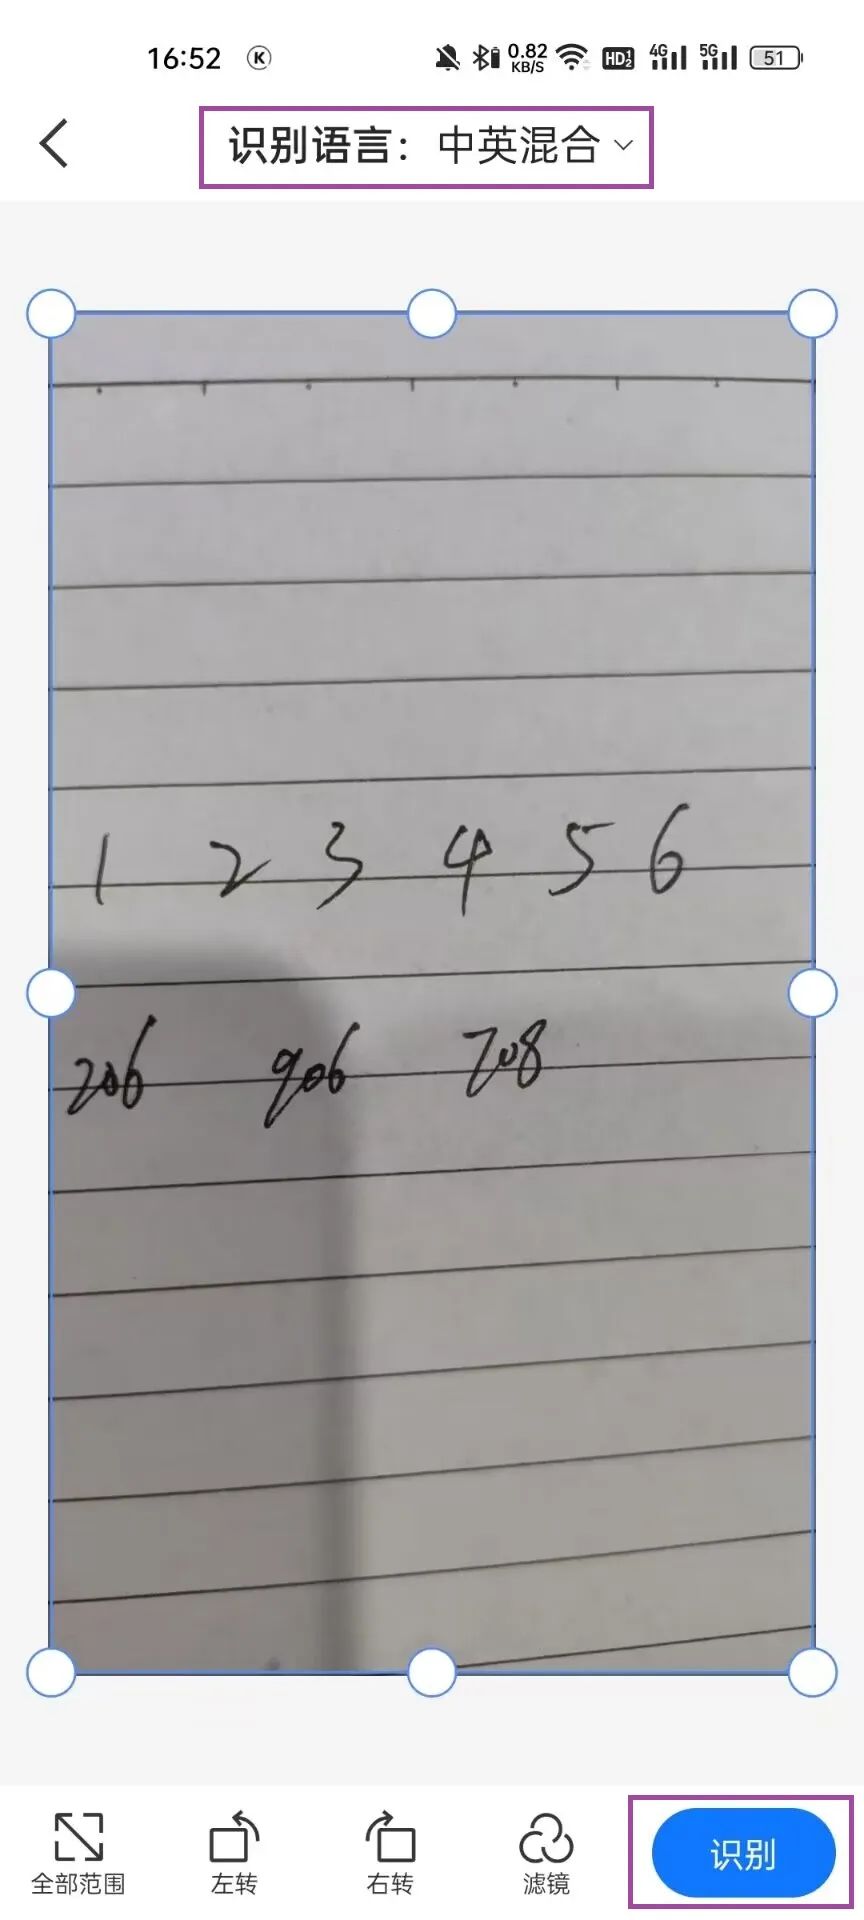 16:52 K 0.82 KB/S HD 1 2 4G 5G 51
识别语言：中英混合
1 2 3 4 5 6
206 906 708
全部范围 左转 右转 滤镜 识别